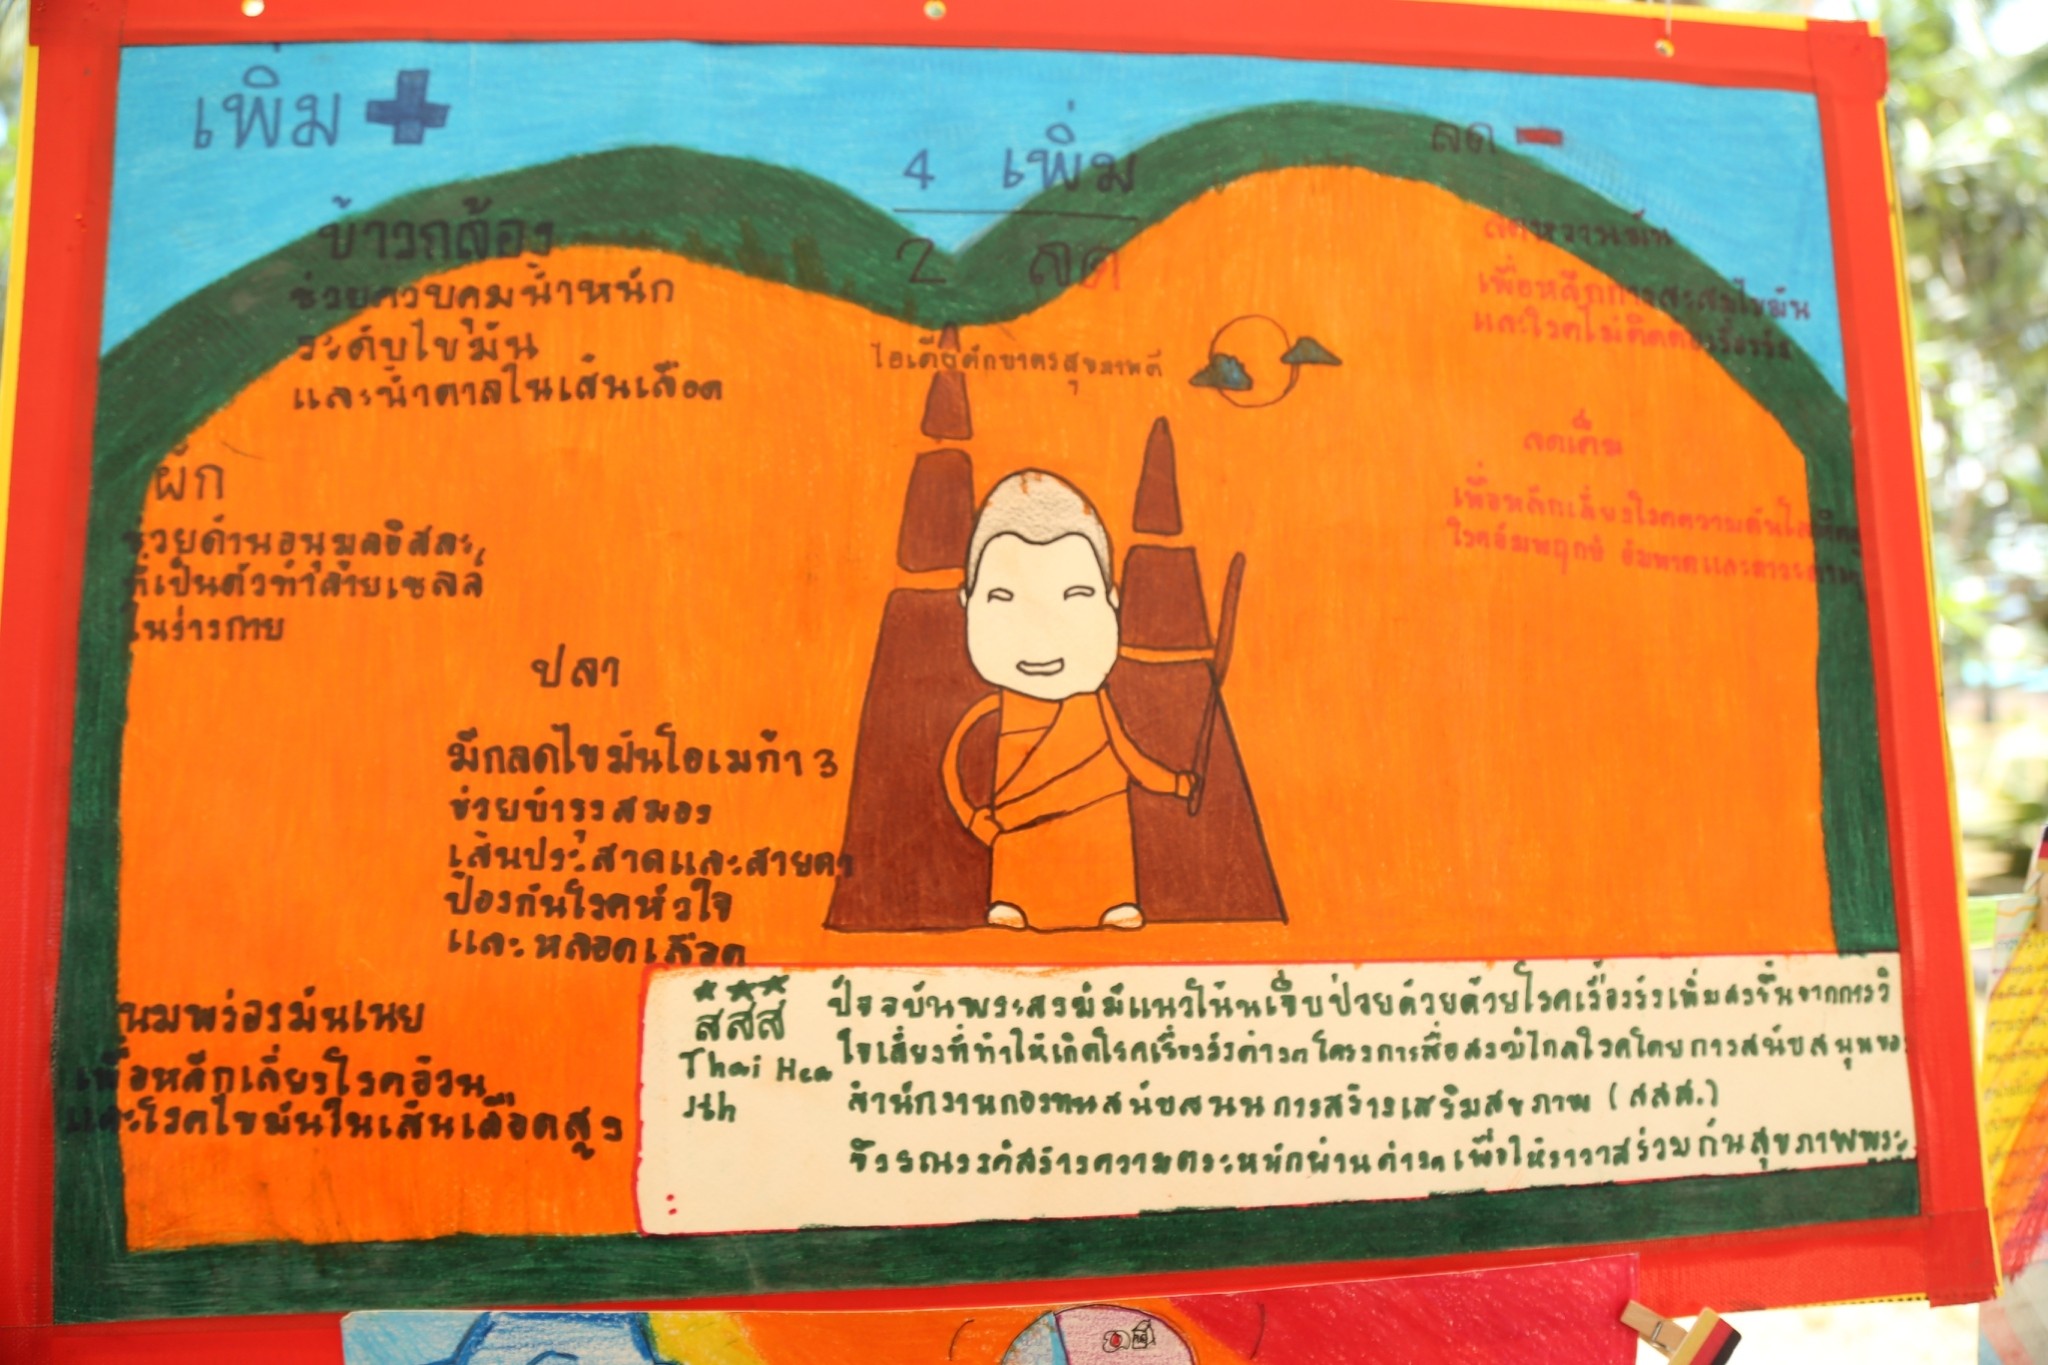 เพิ่ม
4 เพิ่ม
2 ลด
ลด
ข้าวกล้อง
ช่วยควบคุมน้ำหนัก
ระดับไขมัน
และน้ำตาลในเส้นเลือด
ไอเดียตักบาตรสุขภาพดี
ลดหวานมัน
เพื่อหลีกการสะสมไขมัน
และโรคไม่ติดต่อเรื้อรัง
ลดเค็ม
เพื่อหลีกเลี่ยงโรคความดันโลหิต
โรคอัมพฤกษ์ อัมพาตและ
ผัก
ช่วยต้านอนุมูลอิสละ
ที่เป็นตัวทำลายเซลล์
ในร่างกาย
ปลา
มีกลดไขมันโอเมก้า 3
ช่วยบำรุงสมอง
เส้นประสาดและสายตา
ป้องกันโรคหัวใจ
และหลอดเลือด
นมพร่องมันเนย
เพื่อหลีกเลี่ยงโรคอ้วน
และโรคไขมันในเส้นเลือดสูง
สสส
Thai Hea
lth
ปัจจบันพระสงฆ์มีแนวโน้นเจ็บป่วยด้วยด้วยโรคเรื้องรังเพิ่มสงขึ้นจากการวิ
ใจเสี่ยงที่ทำให้เกิดโรคเรื่องรังต่างๆโครงการสื่อสงฆ์ไกลโรคโดยการสนับสนุนขอ
สำนักงานกองทนสนับสนนการสร้างเสริมสขภาพ (สสส.)
จึงรณรงค์สร้างความตระหนักผ่านต่างๆเพื่อให้ราวาสร่วมกันสุขภาพพระ